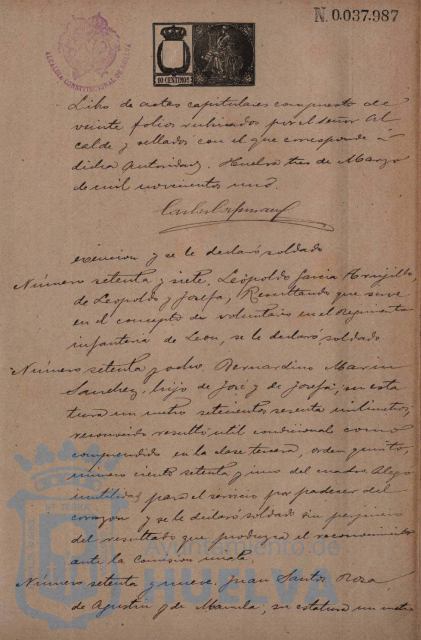 N. 0.037.987
ALCALDIA CONSTITUCIONAL DE HUELVA
10 CENTIMOS
Libro de actas capitulares compuesto de
veinte folios rubricados por el señor Al
calde y sellados con el que corresponde á
dicha Autoridad. Huelva tres de Marzo
de mil novecientos uno.
exencion y se le declaró soldado
Número setenta y siete, Leopoldo Garcia
de Leopoldo y Josefa, Resultando que sirve
en el concepto de voluntario en el Regimiento
infanteria de Leon, se le declaró soldado
Número setenta y ocho. Bernardino Marin
Sanchez, hijo de José y de Josefa, en esta
tura un metro setecientos sesenta milimetros,
reconocido resultó util condicional como
comprendido en la clase tercera, orden quinto,
número ciento setenta y uno del cuadro. Alegó
inutilidad para el servicio por padecer del
corazon y se le declaró soldado sin perjuicio
del resultado que produzca el reconocimiento
ante la Comision mixta
Número setenta y nueve. Juan Santos Rosa
de Agustin y de Manuela, su estatura un metro
Ayuntamiento de
HUELVA